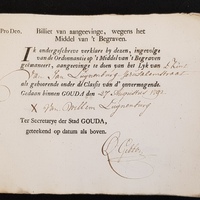 Pro Deo. Billiet van aangeevinge, wegens het
Middel van 't Begraven.
IK ondergeschreve verklare by dezen, ingevolge
van de Ordonnantie op 't Middel van 't Begraven
geëmaneert, aangevinge te doen van het Lyk van
Van Jan
als gehoorende onder de Classe van d' onvermogende.
Gedaan binnen GOUDA den 27 Augustus 1792.
X Van Willem
Ter Secretarye der Stad GOUDA,
geteekend op datum als boven.